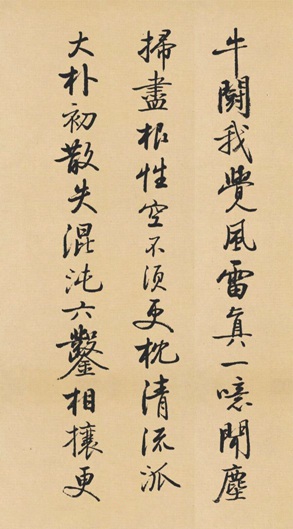 牛鬭我覺風雷真一噫聞塵
掃盡根性空不須更枕清流派
大朴初散失混沌六鑿相攘更